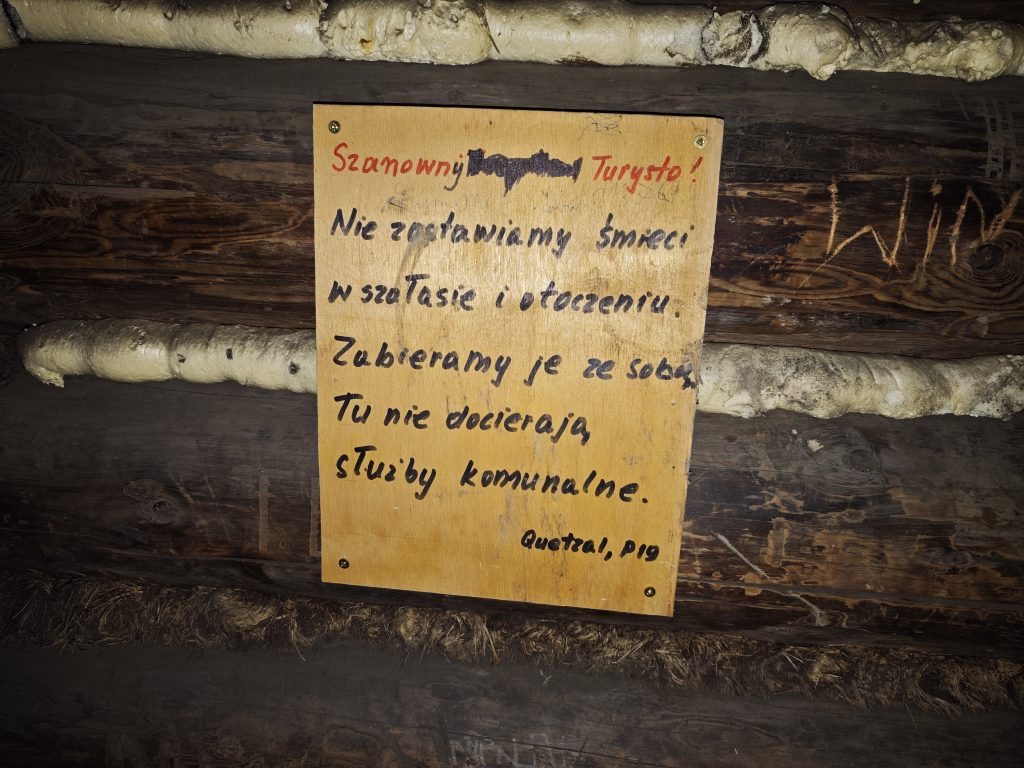 Szanowny Turysto!
Nie zostawiamy śmieci
w szałasie i otoczeniu.
Zabieramy je ze sobą.
Tu nie docierają
służby komunalne.
Quetzal, P19
WiN